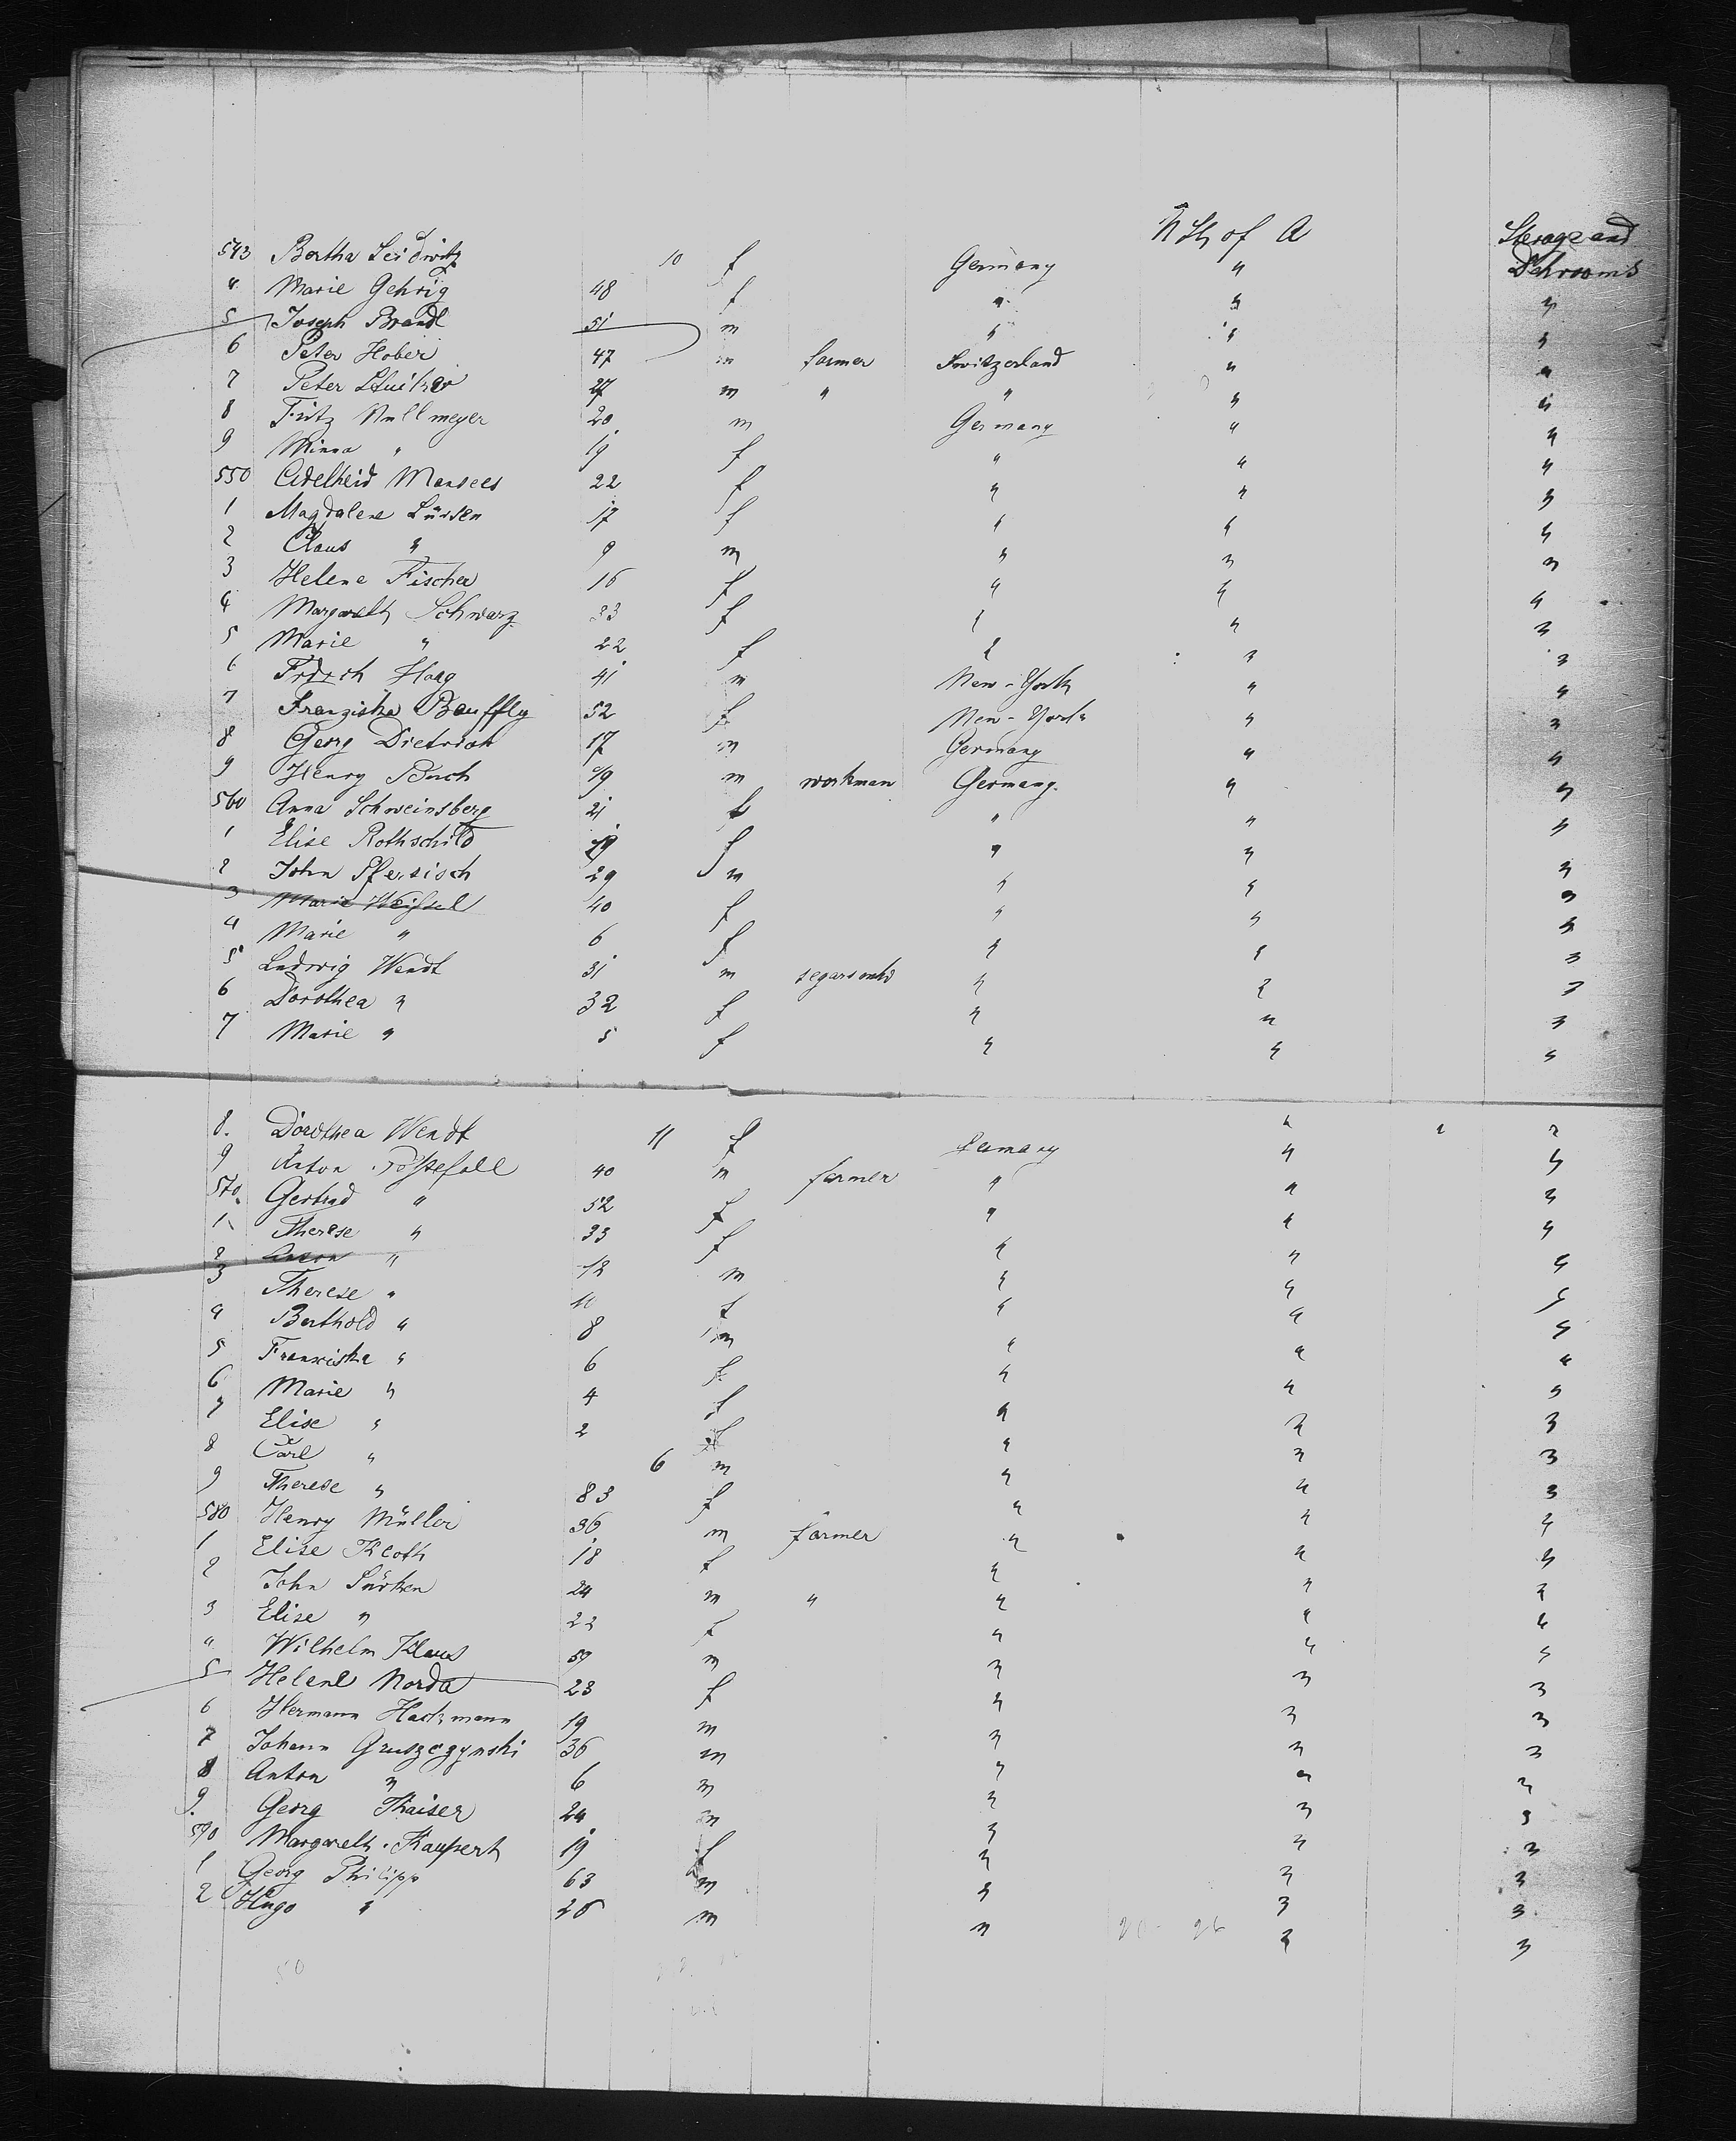 N Sts of A Sterage and
543 Bertha Seidwitz 10 f Germany " Dehrooms
4 Marie Gehrig 48 f " " "
5 Joseph Brandl 51 m " " "
6 Peter Hober 47 m farmer Switzerland " "
7 Peter 27 m " " " "
8 Fritz Nullmeyer 20 m Germany " "
9 Minna " 19 f " " "
550 Adelheid Mansees 22 f " " "
1 Magdalene Lürsen 17 f " " "
2 Claus " 9 m " " "
3 Helene Fischer 16 f " " "
4 Margareth Schwarz 33 f " " "
5 Marie " 22 f " " "
6 Frdrch Haag 41 m New-York " "
7 Franziska Bauffly 52 f New-York " "
8 Georg Dietrich 17 m Germany " "
9 Henry Buch m workman Germany. " "
560 Anna Schweinsberg 21 f " " "
1 Elise Rothschild 19 f " " "
2 John Pfersisch 29 m " " "
3 Marie Weissel 40 f " " "
4 Marie " 6 f " " "
5 Ludwig Wendt 31 m " " "
6 Dorothea " 32 f " " "
7 Marie " 5 f " " "
8. Dorothea Wendt 11 f Germany " " "
9 Anton 40 m farmer " " "
570 Gertrud " 52 f " " "
1 Therese " 33 f " " "
2 Anton " 12 m " " "
3 Therese " 10 f " " "
4 Berthold " 8 m " " "
5 Franziska " 6 f " " "
6 Marie " 4 f " " "
7 Elise " 2 f " " "
8 Carl " 6 m " " "
9 Therese " 83 f " " "
580 Henry Müller 36 m farmer " " "
1 Elise Kloth 18 f " " "
2 John Sürken 24 m " " " "
3 Elise " 22 f " " "
4 Wilhelm Klaus 59 m " " "
5 Helene Norda 23 f " " "
6 Hermann Hackmann 19 m " " "
7 Johann Gruszczynski 36 m " " "
8 Anton " 6 m " " "
9. Georg Kaiser 24 m " " "
590 Margareth. Kaupert 19 f " " "
1 Georg Philipp 63 m " " "
2 Hugo " 26 m " " "
50